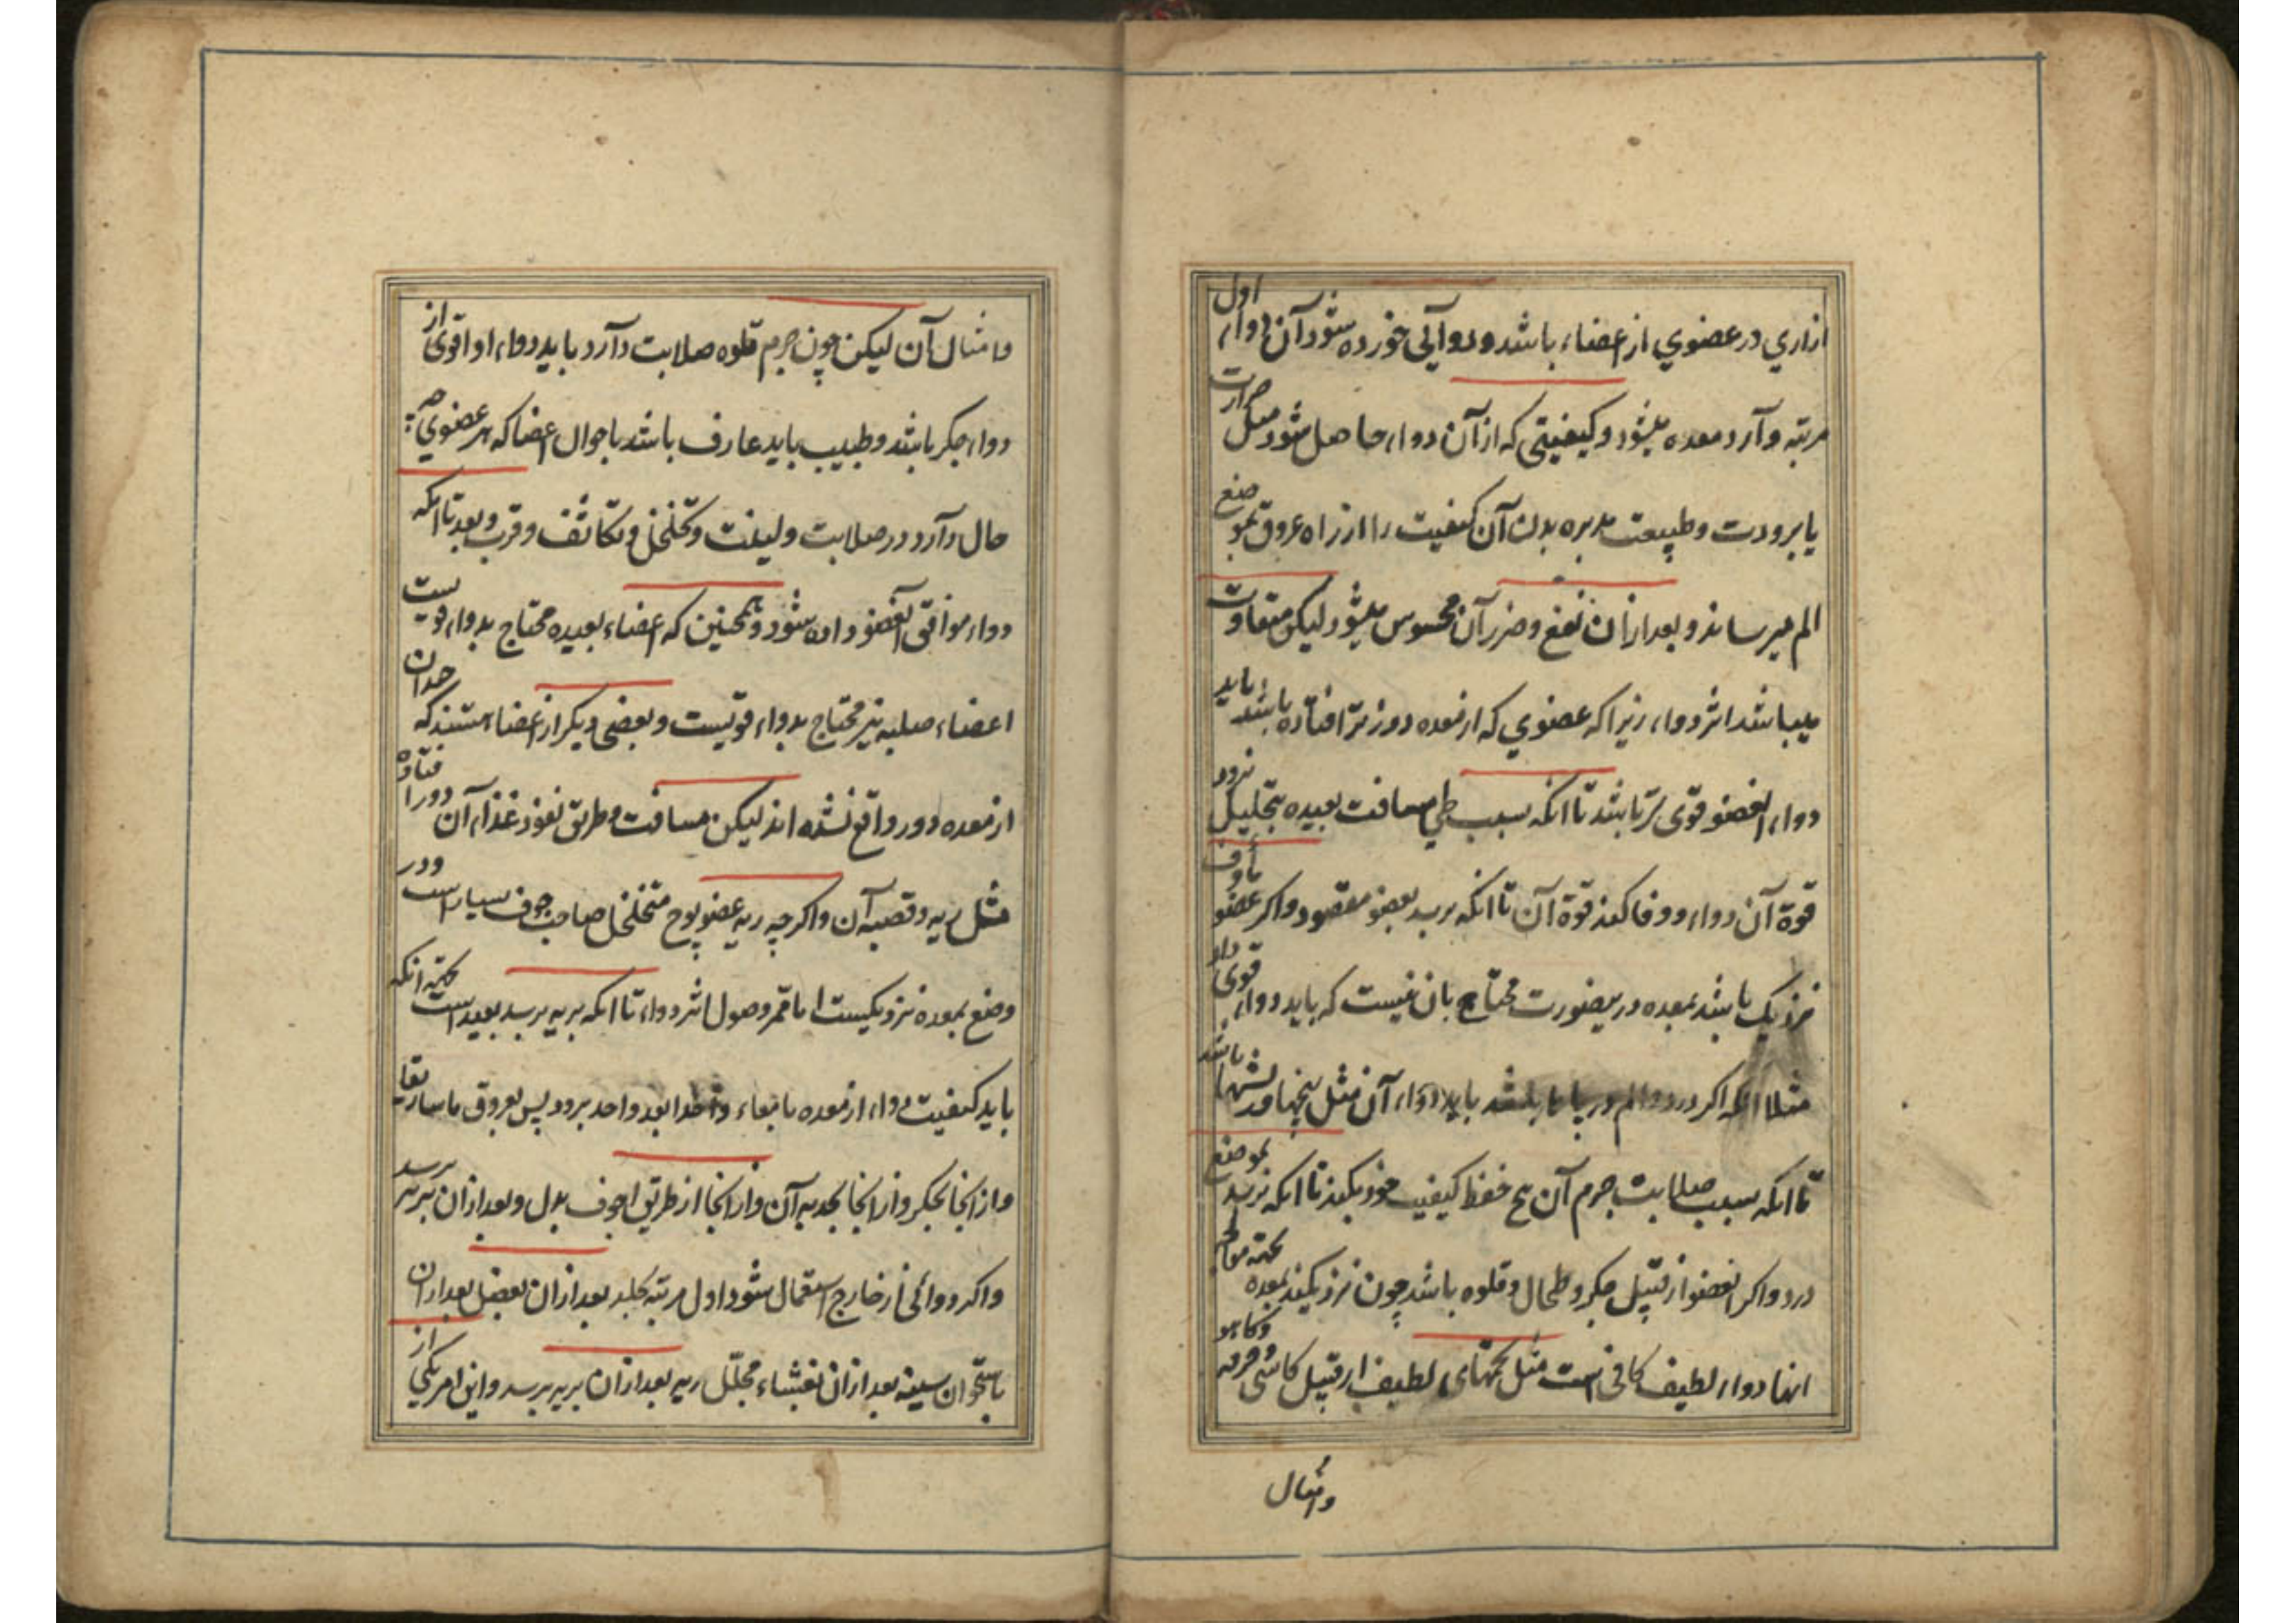 ازاري در عضوي از اعضاء باشد و دوآئی خورده شود آن دواء اول
مرتبه وآرد معده میشود و کیفیتی که از آن دواء حاصل شود مثل حرارت
یا برودت و طبیعت مدبره بدن آن کیفیت را از راه عروق بموضع
الم میرساند و بعد ازان نفع و ضرر آن محسوس میشود لیکن متفاوت
میباشد اثر دواء زیرا که عضوي که از معده دورتر افتاده باشد باید
دواء انعضو قوی تر باشد تا انکه سبب طی مسافت بعیده بتحلیل نرود
قوة آن دواء و وفا کند قوة آن تا انکه برسد بعضو مقصود و اکر عضو مأوف
نزدیک باشد بمعده درینصورت محتاج بان نیست که باید دواء قوی داد
مثلا انکه اکر درد و الم در پاها باشد باید دواء آن مثل بیخها و ریشها باشد
تا انکه بسبب صلابت جرم آن بیخ حفظ کیفیت خود بکند تا انکه برسد بموضع
درد و اکر انعضو از قبیل جکر و طحال و قلوه باشد چون نزدیکند بمعده بجهة معالجه
انها دواء لطیف کافی است مثل تخمهای لطیف از قبیل کاسنی و خرفه و کاهو
وامثال
وامثال آن لیکن چون جرم قلوه صلابت دآرد باید دواء او اقوی از
دواء جکر باشد و طبیب باید عارف باشد باحوال اعضا که هر عضوي چه
حال دآرد در صلابت و لینت و تخلخل و تکاثف و قرب و بعد تا انکه
دواء موافق آنعضو داده شود و همچنین که اعضاء بعیده محتاج بدواء قویست
اعضاء صلبه نیز محتاج بدواء قویست و بعضی دیکر از اعضاء هستند که چندان
از معده دور واقع نشده اند لیکن مسافت و طریق نفوذ غذاء آن دور افتاده
مثل ریه و قصبه آن و اکرچه ریه عضو پوچ متخلخل صاحب جوف بسیار است و در
وضع بمعده نزدیکیست اما ممر وصول اثر دواء تا انکه بریه برسد بعید است بجهة انکه
باید کیفیت دواء از معده بامعاء واحدا بعد واحد برود پس بعروق ماساریقا
و از انجا بجکر و از انجا بحدبه آن و از انجا از طریق اجوف بدل و بعد ازان بریه برسد
و اکر دوائی از خارج استعمال شود اول مرتبه بجلد بعد ازان بعضل بعد ازان
باستخوان سینه بعد ازان بغشاء مجلل ریه بعد ازان بریه برسد و این امر یکی از